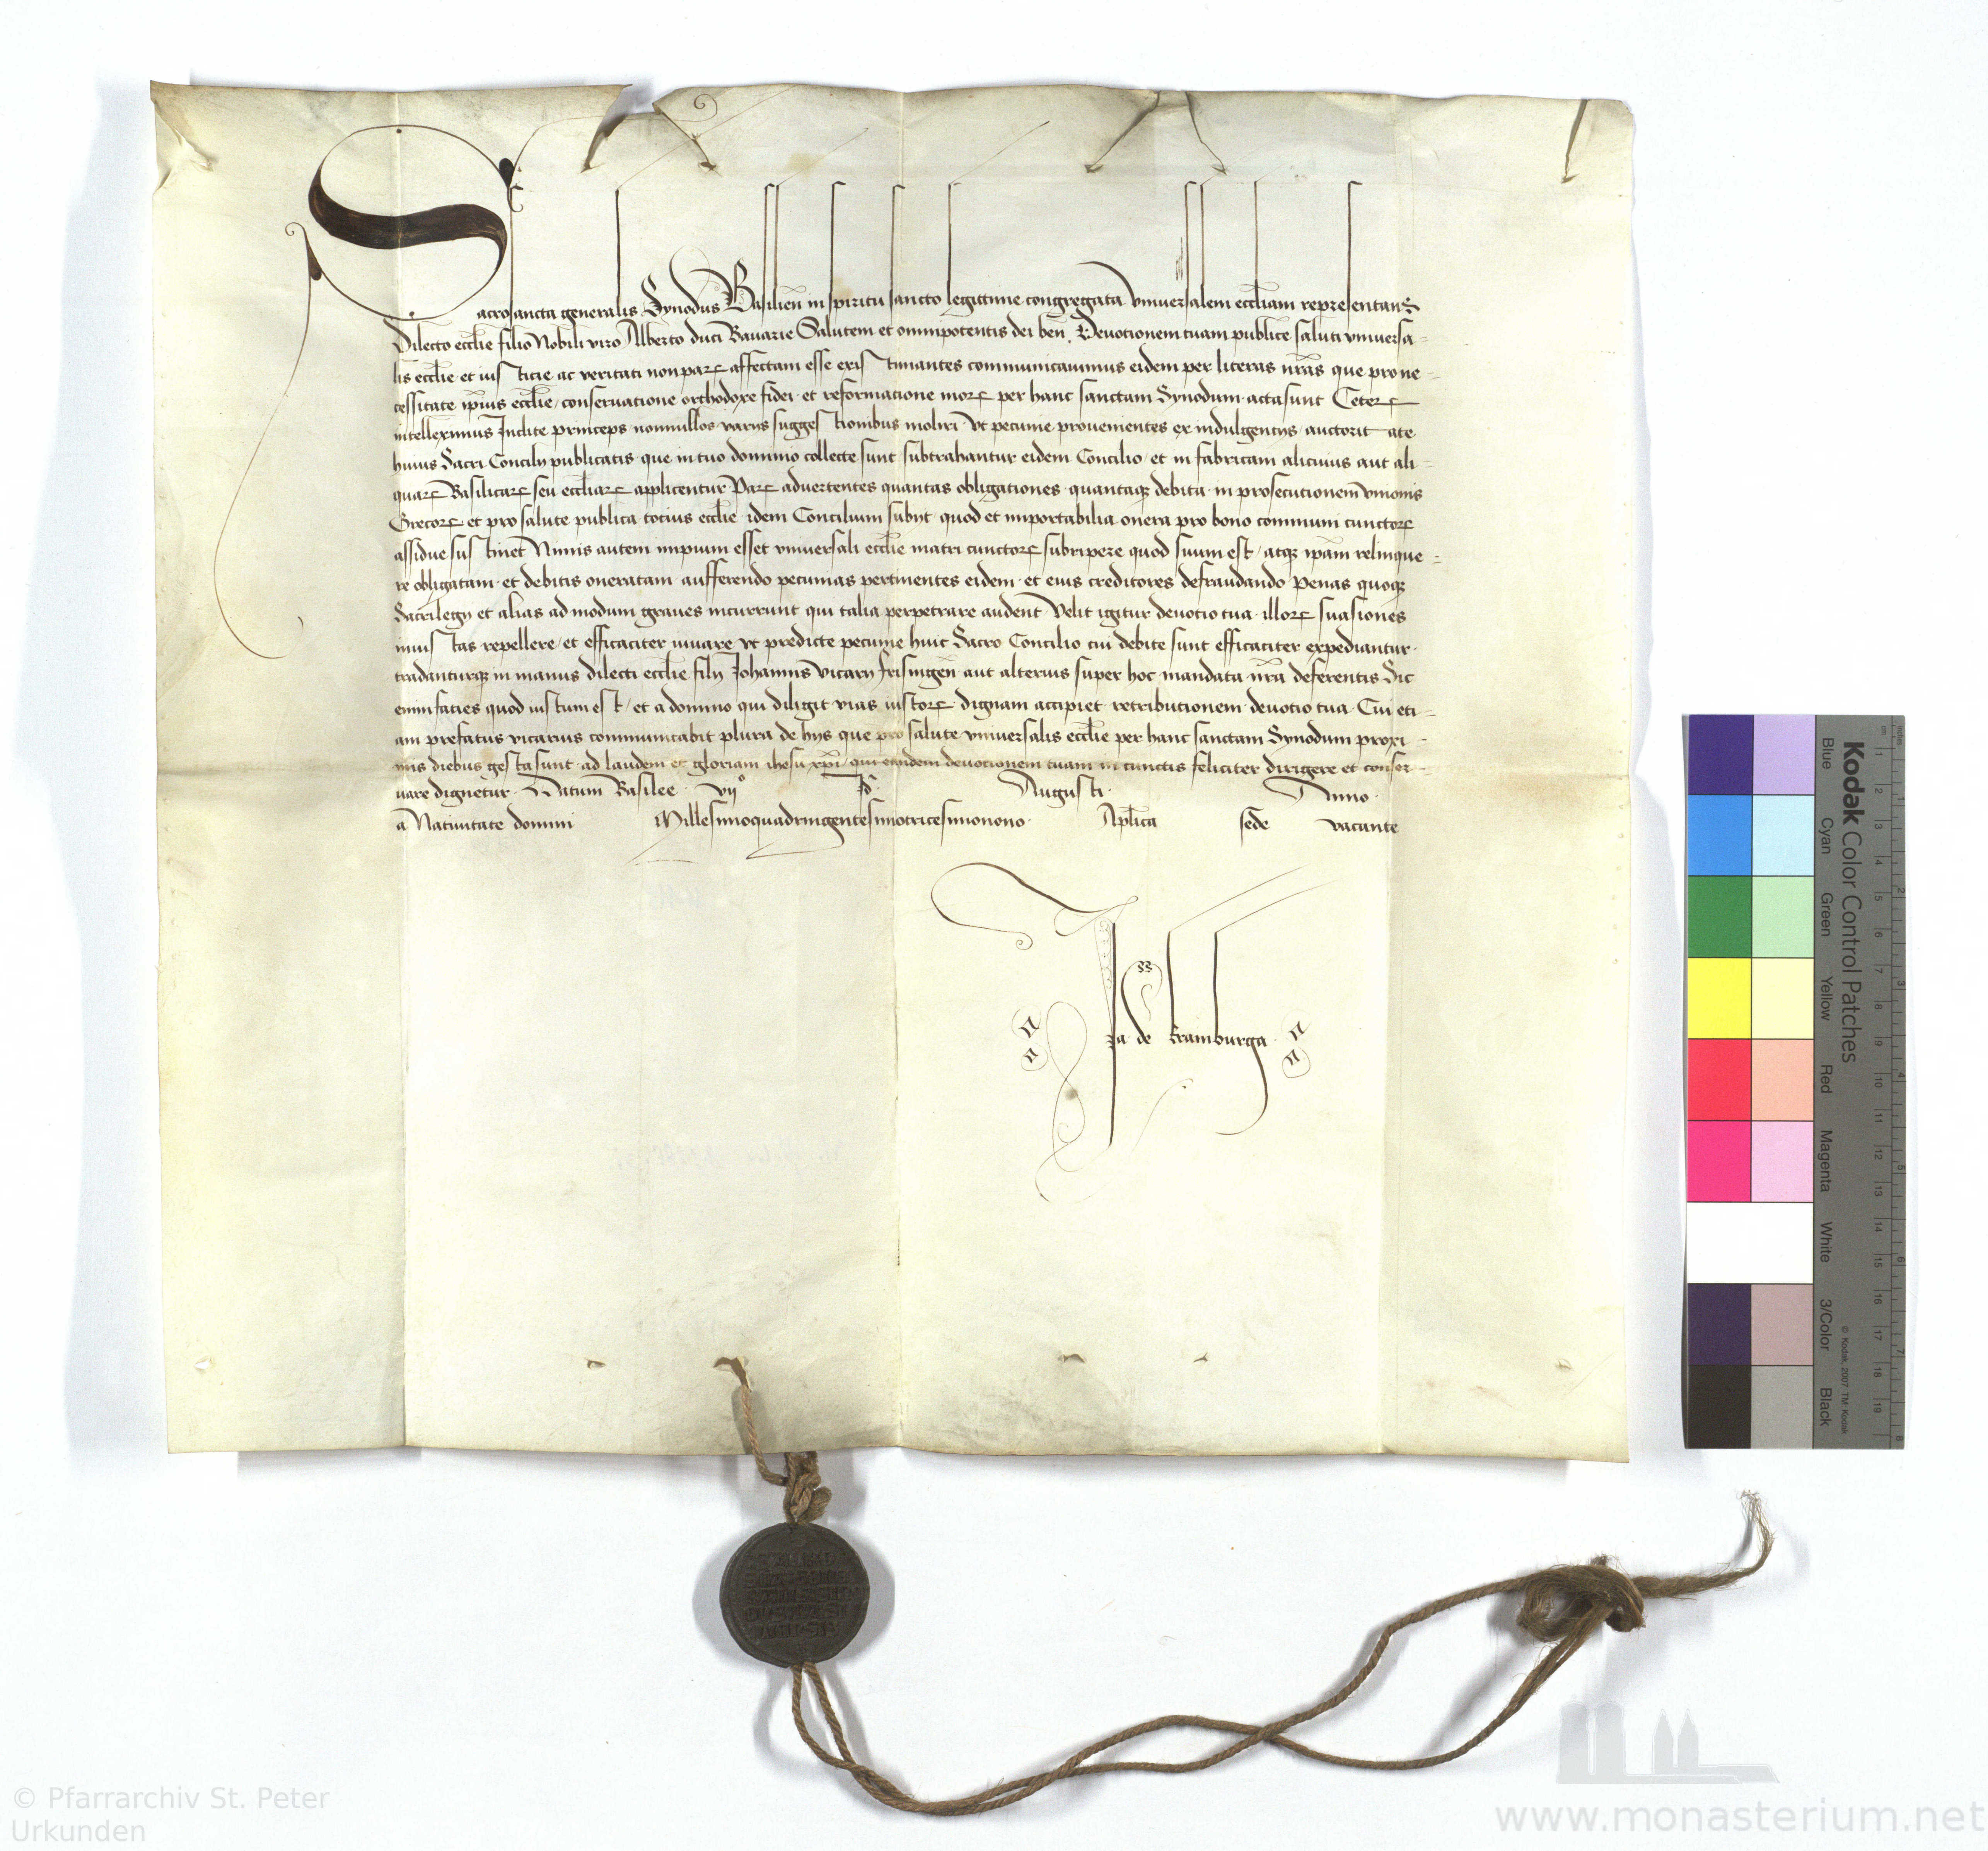 Sacrosancta generalis Synodus Basilien̄ in spiritu sancto legittime congregata vniuersalem eccl̄iam representans
Dilecto eccl̄ie filio Nobili viro Alberto duci Bauarie Salutem et omnipotentis dei ben̄. Deuotionem tuam publice saluti vniuersa-
lis eccl̄ie et iusticie ac veritati non parꝝ affectam esse existimantes communicauimus eidem per literas nr̄as que pro ne-
cessitate ip̄ius eccl̄ie, conseruatione orthodoxe fidei et reformacione morꝝ per hanc sanctam Synodum acta sunt Ceterꝝ
intelleximus Inclite princeps nonnullos varijs suggestionibus moliri vt pecunie prouenientes ex indulgentijs auctoritate
huius Sacri Concilij publicatis que in tuo dominio collecte sunt subtrahantur eidem Concilio, et in fabricam alicuius aut ali-
quarꝝ Basilicarꝝ seu eccl̄iarꝝ applicentur Parꝝ aduertentes quantas obligationes quantaqꝫ debita in prosecutionem vnionis
Grecorꝝ et pro salute publica totius eccl̄ie idem Concilium subijt quod et importabilia onera pro bono communi cunctorꝝ
assidue sustinet Nimis autem impium esset vniuersali eccl̄ie matri cunctorꝝ subripere quod suum est, atqꝫ ip̄am relinque-
re obligatam et debitis oneratam aufferendo pecunias pertinentes eidem et eius creditores defraudando Penas quoqꝫ
Sacrilegij et alias ad modum graues incurrunt qui talia perpetrare audent Velit igitur deuotio tua illorꝝ suasiones
iniustas repellere, et efficaciter iuuare vt predicte pecunie huic Sacro Concilio cui debite sunt efficaciter expediantur
tradanturqꝫ in manus dilecti eccl̄ie filij Johannis vicarij frisingen̄ aut alterius super hoc mandata nr̄a deferentis Sic
enim facies quod iustum est, et a domino qui diligit vias iustorꝝ dignam accipiet retributionem deuotio tua Cui eti-
am prefatus vicarius communicabit plura de hijs que pro salute vniuersalis eccl̄ie per hanc sanctam Synodum proxi-
mis diebus gesta sunt ad laudem et gloriam ihesu xp̄i qui eandem deuotionem tuam in cunctis feliciter dirigere et conser-
uare dignetur Datum Basilee vij° Id. Augusti Anno
a Natiuitate domini Millesimoquadringentesimotricesimonono Ap̄lica sede vacante
Ja de kramburga
Kodak Color Control Patches
Blue Cyan Green Yellow Red Magenta White 3/Color Black
© Kodak, 2007 TM: Kodak
cm 1 2 3 4 5 6 7 8 9 10 11 12 13 14 15 16 17 18 19
inches 1 2 3 4 5 6 7 8
© Pfarrarchiv St. Peter
Urkunden
www.monasterium.net